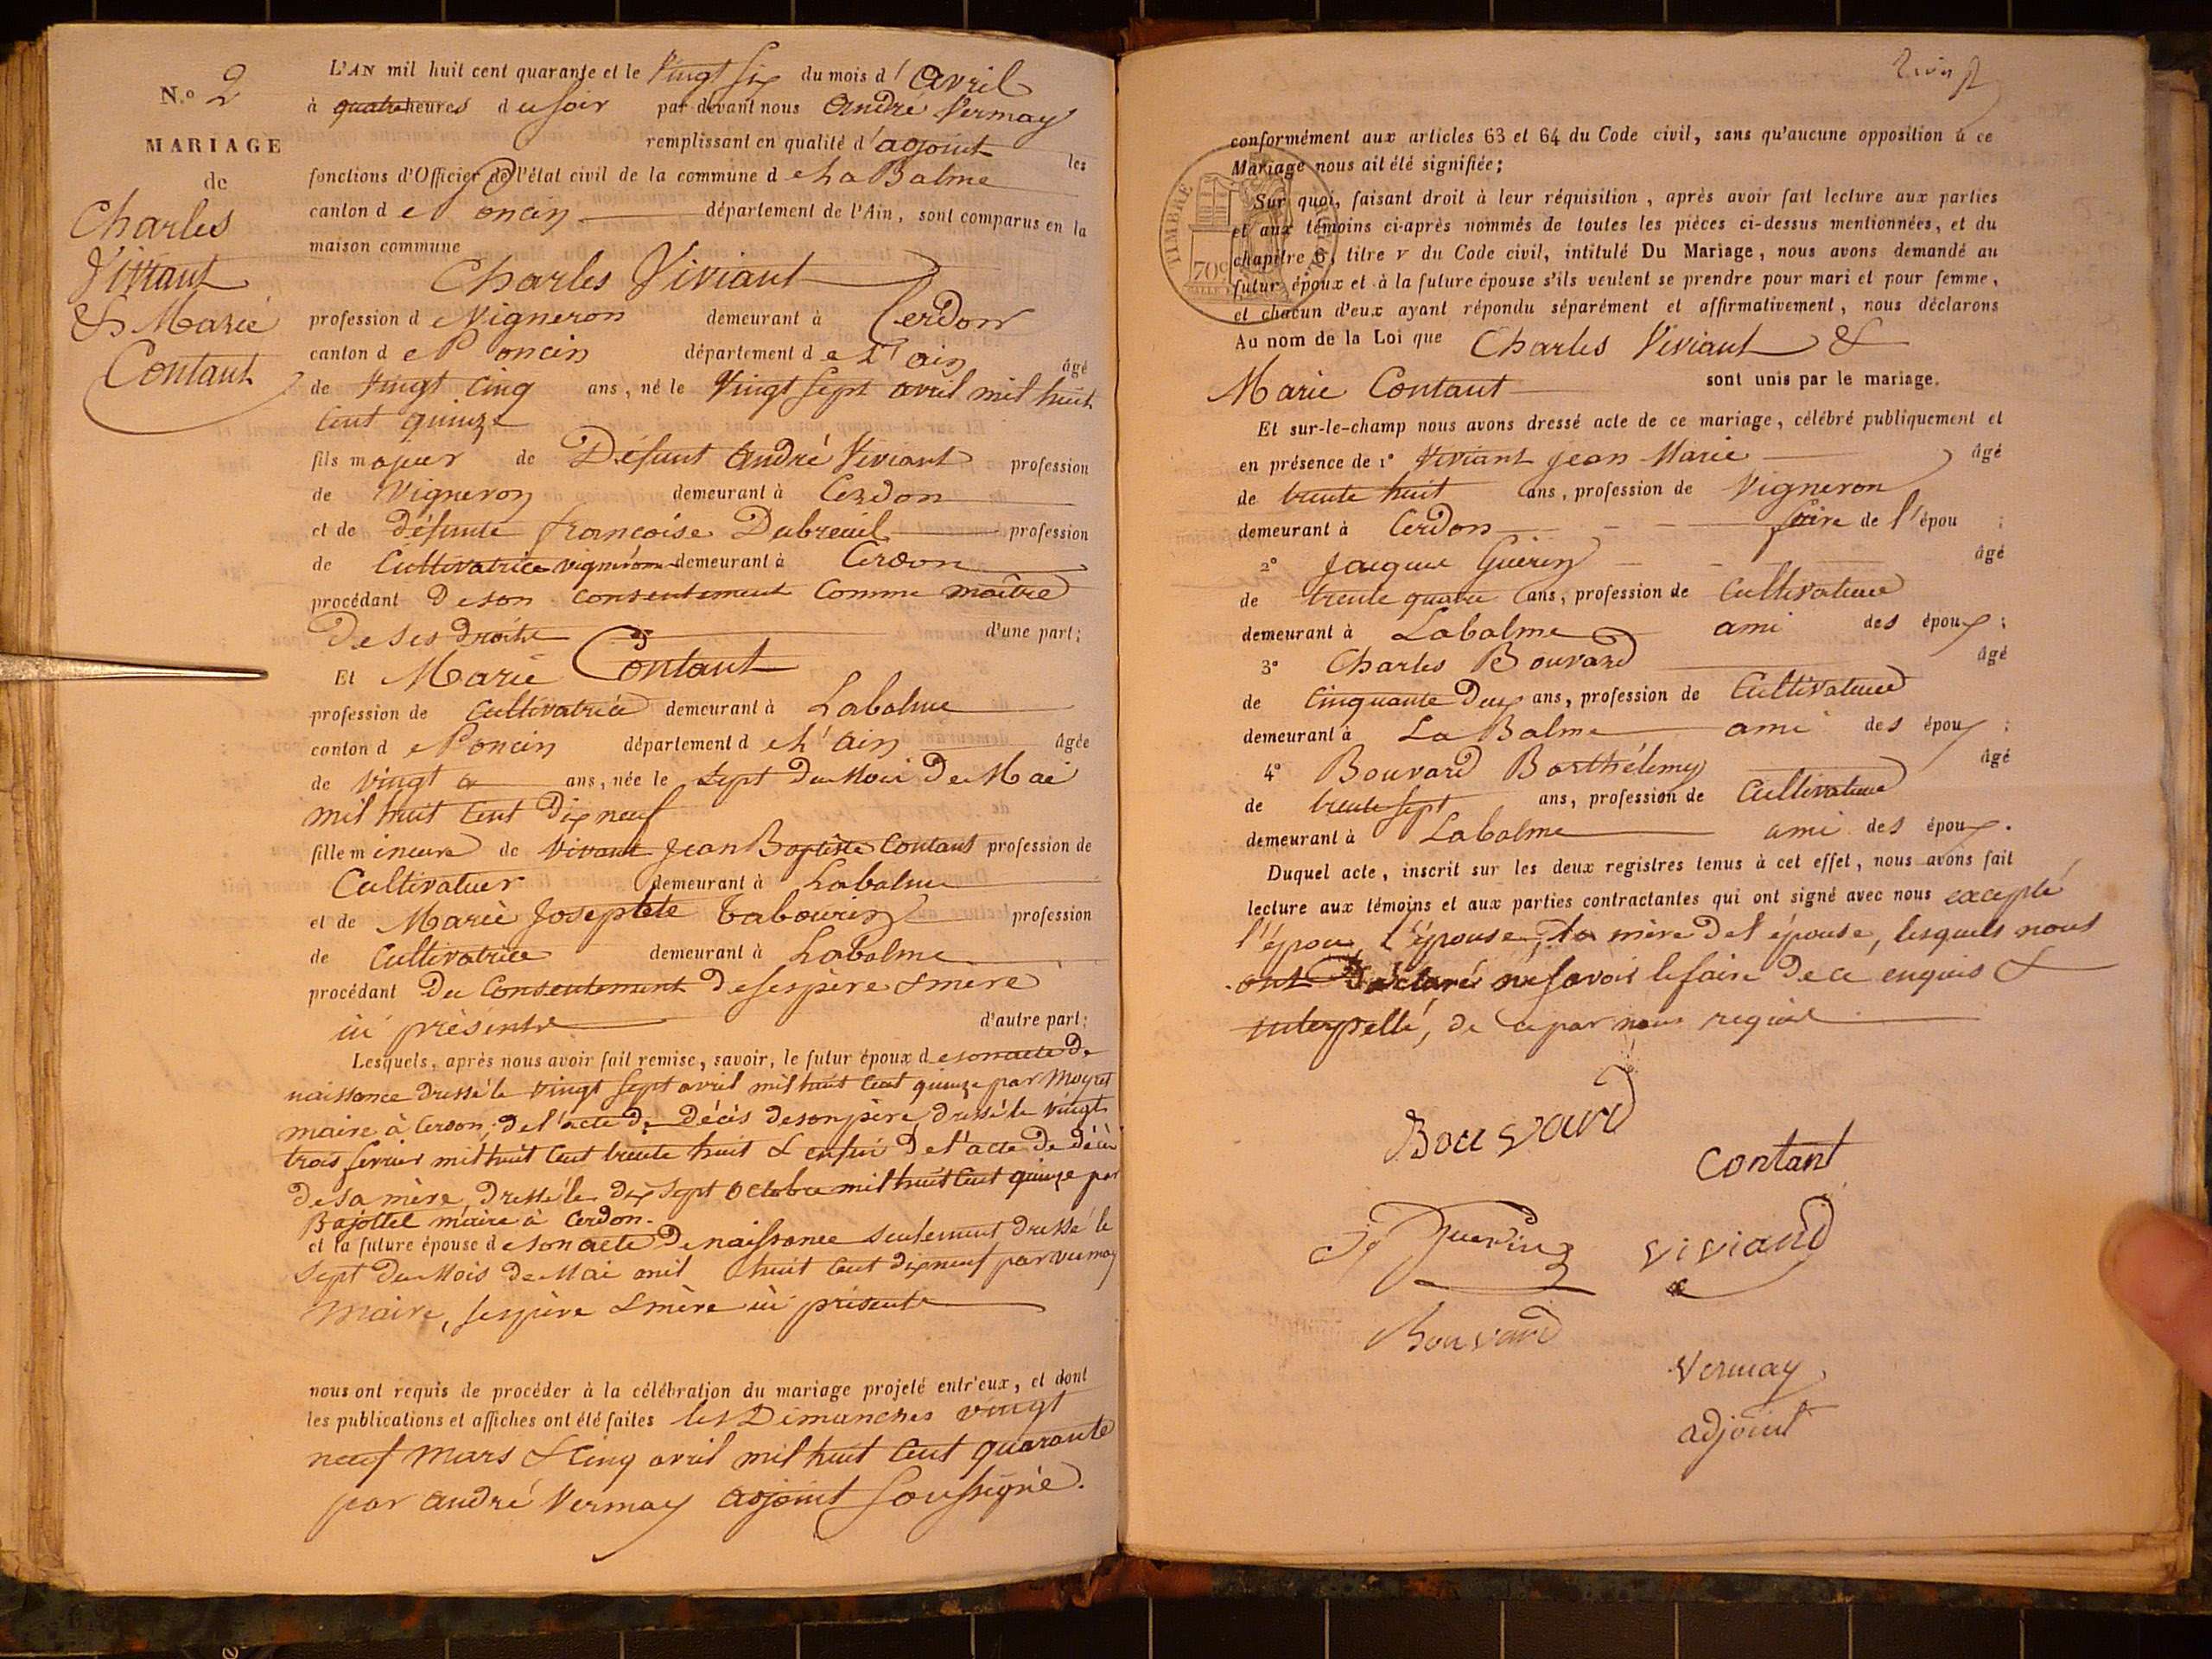 N.o 2
MARIAGE
de
Charles
Viviant
& Marie
Contant
L'AN mil huit cent quarante et le Vingt six du mois d'Avril
à quatre heures du soir par devant nous André Vermay
remplissant en qualité d'adjoint les
fonctions d'Officier de l'état civil de la commune de La Balme
canton de Poncin département de l'Ain, sont comparus en la
maison commune
Charles Viviant
profession d Vigneron demeurant à Cerdon
canton de Poncin département de L'ain âgé
de Vingt cinq ans, né le Vingt sept avril mil huit
cent quinze
fils majeur de Défunt André Viviant profession
de Vigneron demeurant à Cerdon
et de défunte françoise Dubreuil profession
de Cultivatrice vigneronne demeurant à Cerdon
procédant De son consentement comme maître
De ses droits d'une part;
Et Marie Contant
profession de Cultivatrice demeurant à Labalme
canton de Poncin département de L'ain âgée
de vingt ans, née le sept Du Mois De Mai
mil huit cent Dix neuf
fille mineure de vivant Jean Baptiste Contant profession de
Cultivateur demeurant à Labalme
et de Marie Josephte Tabourin profession
de Cultivatrice demeurant à Labalme
procédant Du Consentement De ses père & mère
ici présents d'autre part;
Lesquels, après nous avoir fait remise, savoir, le futur époux de son acte De
naissance dressé le vingt sept avril mil huit cent quinze par Moyret
maire à Cerdon, de l'acte De Décès de son père, dressé le vingt
trois fevrier mil huit cent trente huit & enfin De l'acte De décès
De sa mère, dressé le dix sept octobre mil huit cent quinze par
Bajollet maire à Cerdon.
et la future épouse de son acte De naissance seulement dressé le
sept Du Mois De Mai mil huit cent dix neuf par vermay
Maire, ses père & mère ici présents
nous ont requis de procéder à la célébration du mariage projeté entr'eux, et dont
les publications et affiches ont été faites les Dimanches vingt
neuf Mars & cinq avril mil huit cent quarante
par André Vermay adjoint soussigné.
conformément aux articles 63 et 64 du Code civil, sans qu'aucune opposition à ce
Mariage nous ait été signifiée;
TIMBRE
70c
Sur quoi, faisant droit à leur réquisition, après avoir fait lecture aux parties
et aux témoins ci-après nommés de toutes les pièces ci-dessus mentionnées, et du
chapitre 6, titre v du Code civil, intitulé Du Mariage, nous avons demandé au
futur époux et à la future épouse s'ils veulent se prendre pour mari et pour femme,
et chacun d'eux ayant répondu séparément et affirmativement, nous déclarons
Au nom de la Loi que Charles Viviant &
Marie Contant sont unis par le mariage.
Et sur-le-champ nous avons dressé acte de ce mariage, célébré publiquement et
en présence de 1o Viviant Jean Marie âgé
de trente huit ans, profession de Vigneron
demeurant à Cerdon frère de l'épou ;
2o Jacques Guérin âgé
de trente quatre ans, profession de Cultivateur
demeurant à Labalme ami des époux ;
3o Charles Bouvard âgé
de Cinquante Deux ans, profession de Cultivateur
demeurant à La Balme ami des époux ;
4o Bouvard Barthélemy âgé
de trente sept ans, profession de Cultivateur
demeurant à Labalme ami des époux.
Duquel acte, inscrit sur les deux registres tenus à cet effet, nous avons fait
lecture aux témoins et aux parties contractantes qui ont signé avec nous excepté
l'époux, l'épouse, la mère De l'épouse, lesquels nous
ont Déclaré ne savoir le faire de ce enquis &
interpellé, de ce par nous requis
Bouvard
Contant
Guerin
viviand
Bouvard
Vermay
adjoint